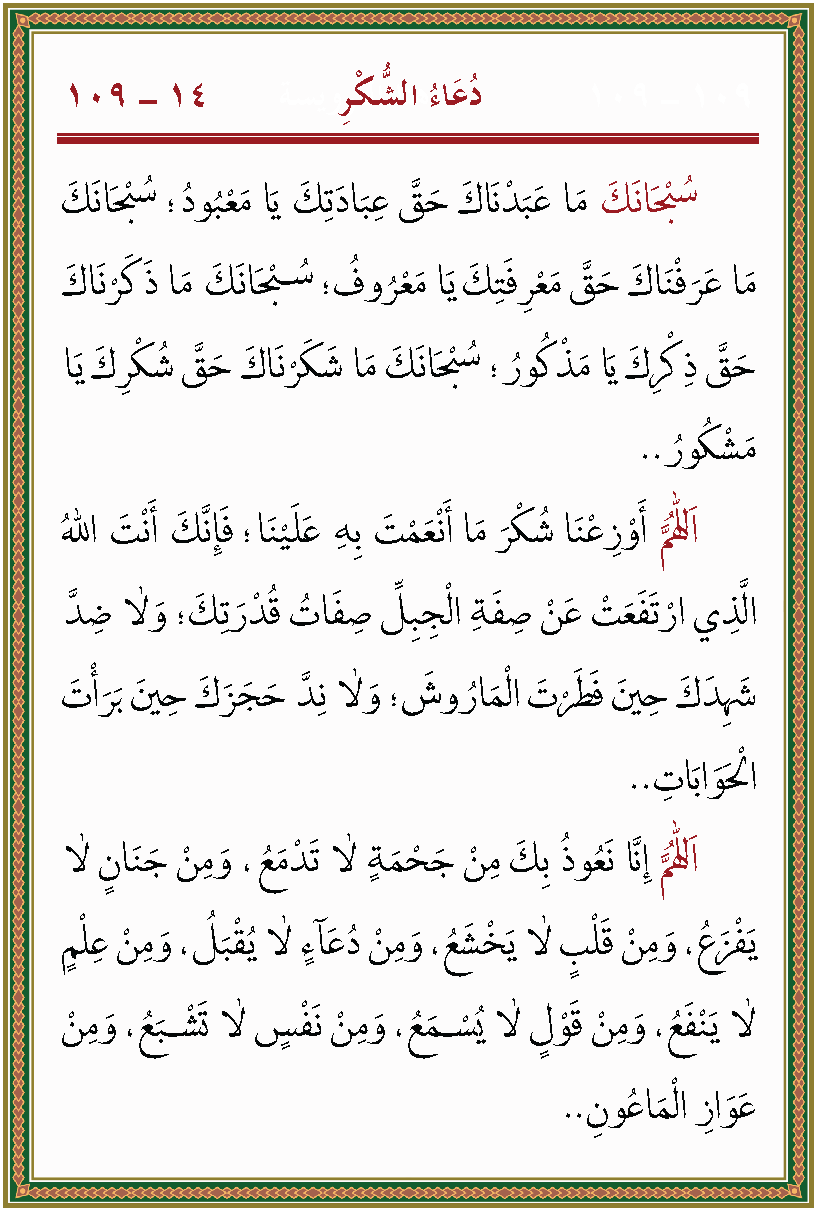 دُعَاءُ الشُّكْرِ ١٤ – ١٠٩
سُبْحَانَكَ مَا عَبَدْنَاكَ حَقَّ عِبَادَتِكَ يَا مَعْبُودُ؛ سُبْحَانَكَ
مَا عَرَفْنَاكَ حَقَّ مَعْرِفَتِكَ يَا مَعْرُوفُ؛ سُبْحَانَكَ مَا ذَكَرْنَاكَ
حَقَّ ذِكْرِكَ يَا مَذْكُورُ؛ سُبْحَانَكَ مَا شَكَرْنَاكَ حَقَّ شُكْرِكَ يَا
مَشْكُورُ..
اَللّٰهُمَّ أَوْزِعْنَا شُكْرَ مَا أَنْعَمْتَ بِهِ عَلَيْنَا؛ فَإِنَّكَ أَنْتَ اللهُ
الَّذِي ارْتَفَعَتْ عَنْ صِفَةِ الْجِبِلِّ صِفَاتُ قُدْرَتِكَ؛ وَلَا ضِدَّ
شَهِدَكَ حِينَ فَطَرْتَ الْمَارُوشَ؛ وَلَا نِدَّ حَجَزَكَ حِينَ بَرَأْتَ
الْحَوَابَاتِ..
اَللّٰهُمَّ إِنَّا نَعُوذُ بِكَ مِنْ جَحْمَةٍ لَا تَدْمَعُ، وَمِنْ جَنَانٍ لَا
يَفْزَعُ، وَمِنْ قَلْبٍ لَا يَخْشَعُ، وَمِنْ دُعَآءٍ لَا يُقْبَلُ، وَمِنْ عِلْمٍ
لَا يَنْفَعُ، وَمِنْ قَوْلٍ لَا يُسْمَعُ، وَمِنْ نَفْسٍ لَا تَشْبَعُ، وَمِنْ
عَوَازِ الْمَاعُونِ..